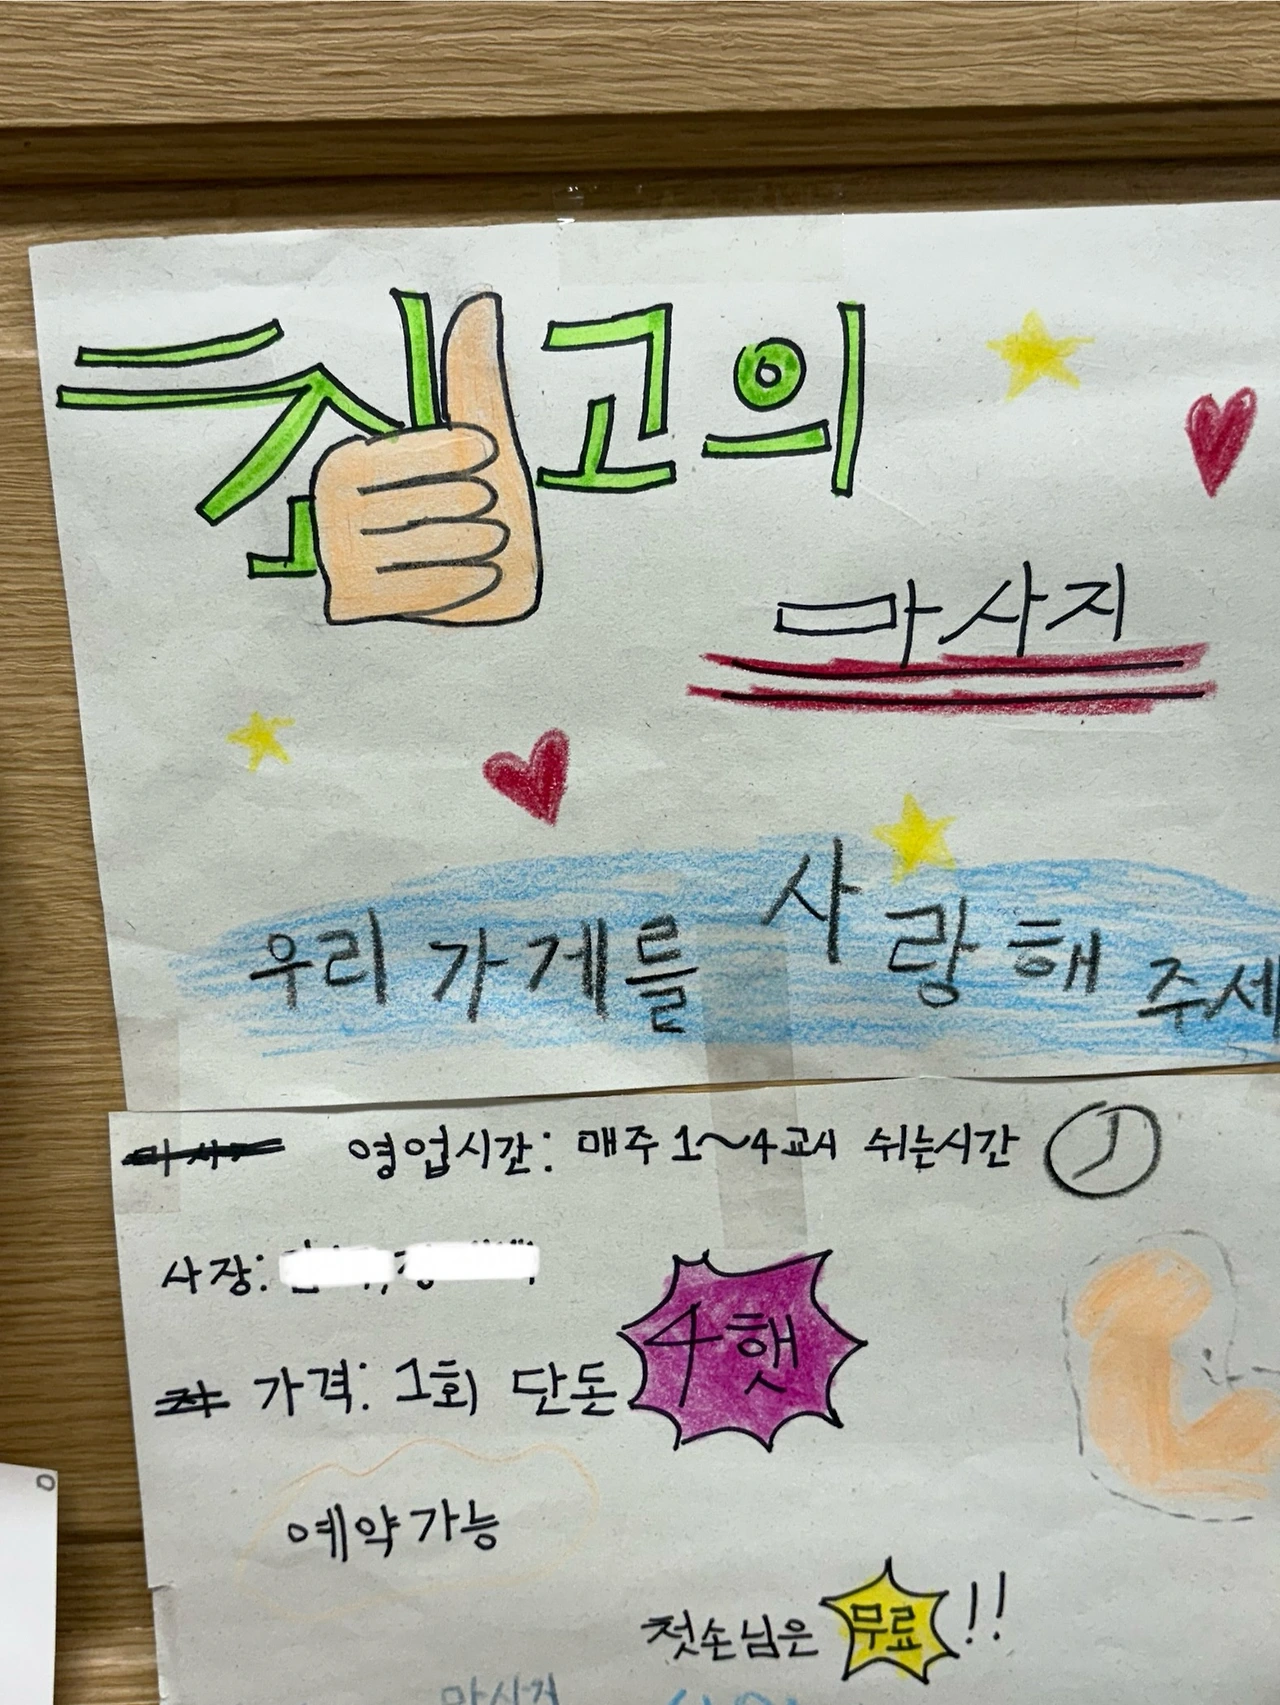 최고의
마사지
우리 가게를 사랑해 주세
영업시간: 매주 1~4교시 쉬는시간
사장:
가격: 1회 단돈 4햇
예약가능
첫손님은 무료!!
마사지